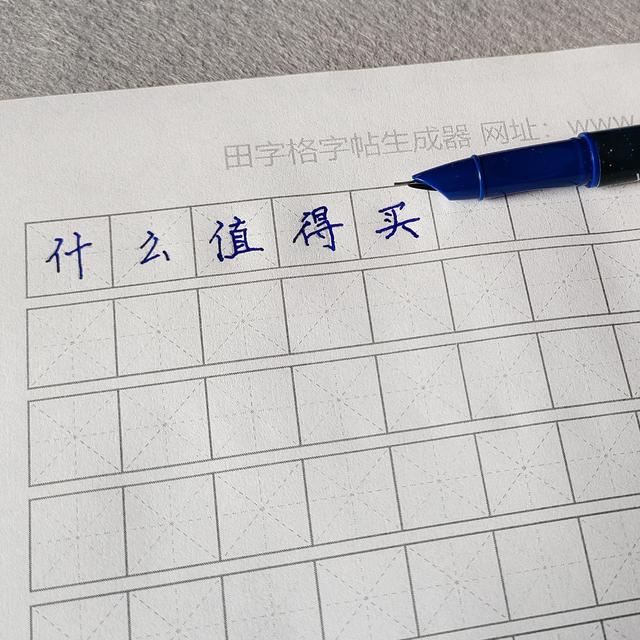 田字格字帖生成器 网址：www.
什么值得买